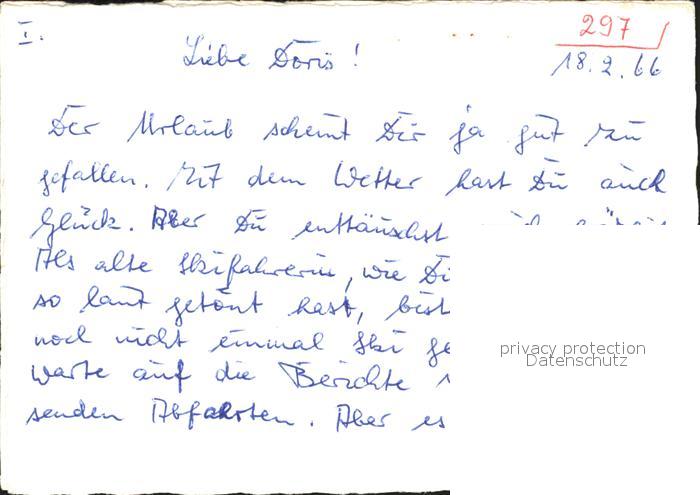 I.
297
Liebe Doris!
18.2.66
Der Urlaub scheint Dir ja gut zu
gefallen. Mit dem Wetter hast Du auch
Glück. Aber Du enttäuschst
Als alte Skifahrerin, wie
so laut getönt hast, bist
noch nicht einmal Ski
warte auf die Berichte
senden Abfahrten. Aber es
privacy protection
Datenschutz